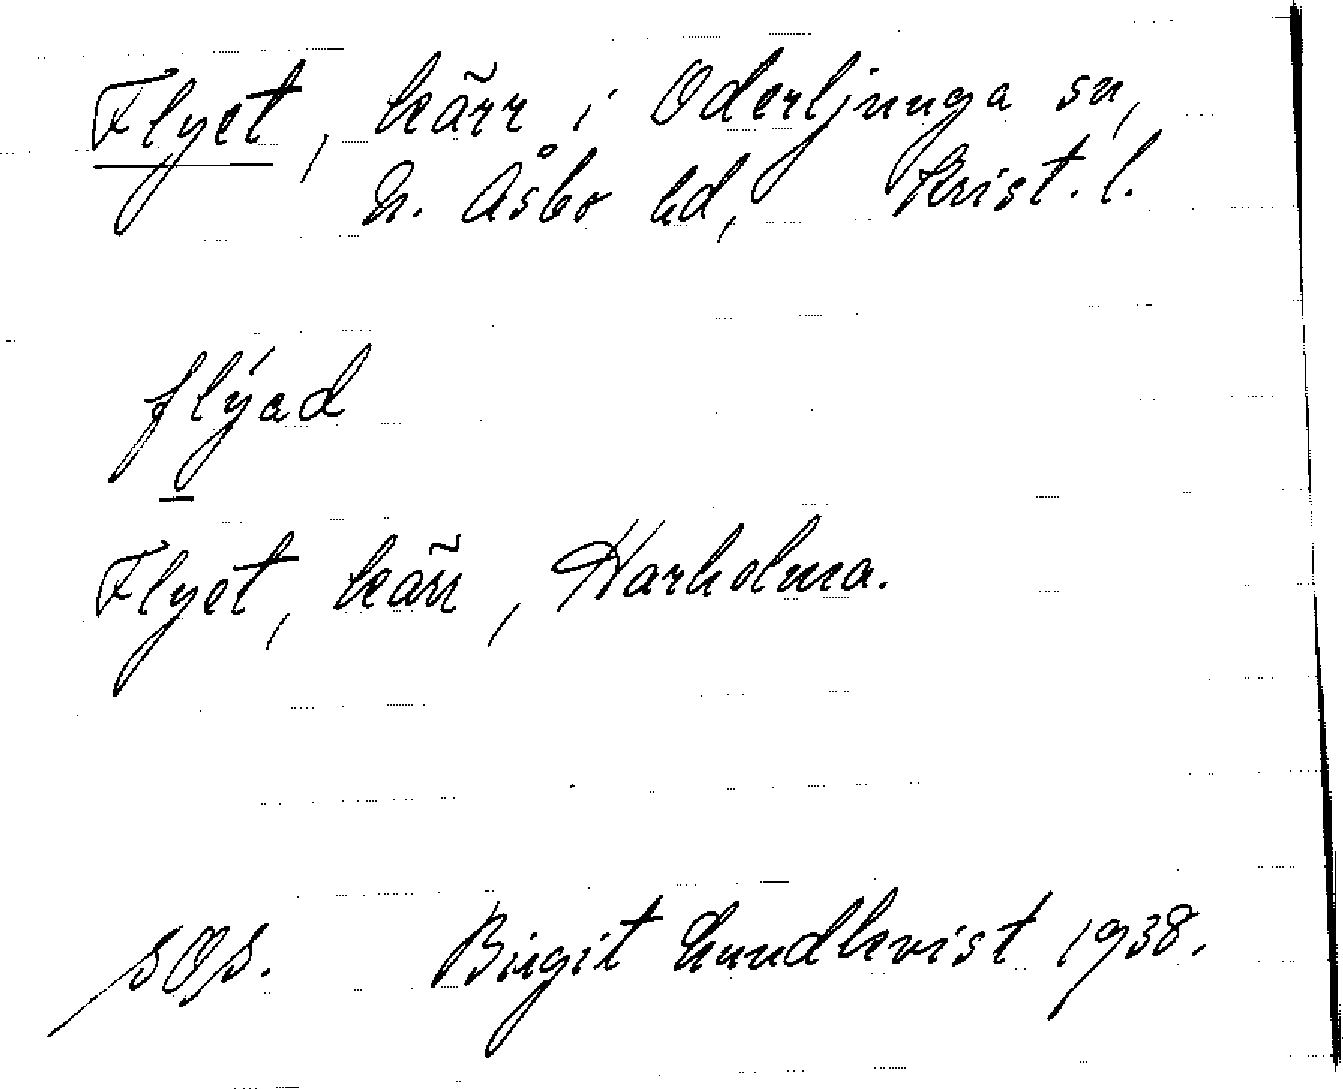 Flyet, kärr i Oderljunga sn,
N. Åsbo hd, Krist. l.
flýad
Flyet, kärr, Harholma.
SOS. Birgit Lundkvist 1938.